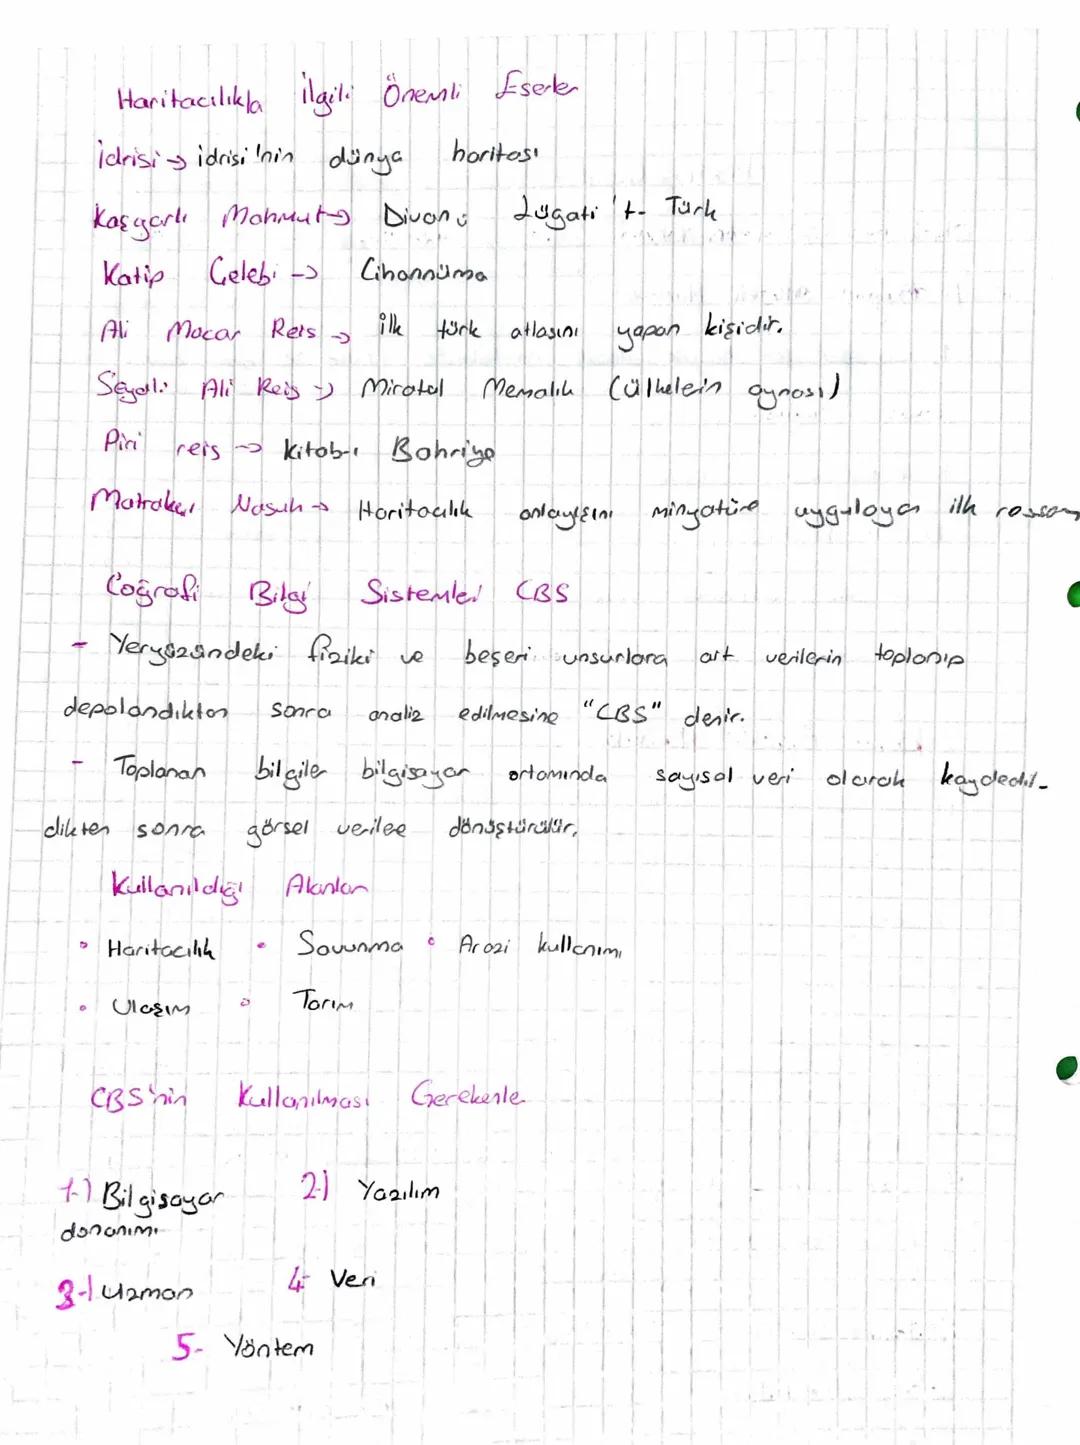 Haritacılıkla ilgili Önemli Eserler
İdrisi → idrisi'nin dünya haritası
Kaşgarlı Mahmut → Divanı Lügati't- Türk
Katip Çelebi → Cihannüma
Ali Macar Reis → ilk türk atlasını yapan kişidir.
Seydi Ali Reis → Miratal Memalik (ülkelein aynası)
Piri reis → kitab-ı Bahriye
Matrakçı Nasuh → Haritacılık anlayışını minyatüre uygulayan ilk ressam
Coğrafi Bilgi Sistemleri CBS
- Yeryüzündeki fiziki ve beşeri unsurlara ait verilerin toplanıp
depolandıktan sonra analiz edilmesine "CBS" denir.
- Toplanan bilgiler bilgisayar ortamında sayısal veri olarak kaydedil-
dikten sonra görsel verilee dönüştürülür.
Kullanıldığı Alanlar
• Haritacılık • Savunma • Arazi kullanımı
• Ulaşım • Tarım
CBS'nin Kullanılması Gerekenle
1-) Bilgisayar 2-) Yazılım
donanımı
3-) Uzman 4- Veri
5- Yöntem